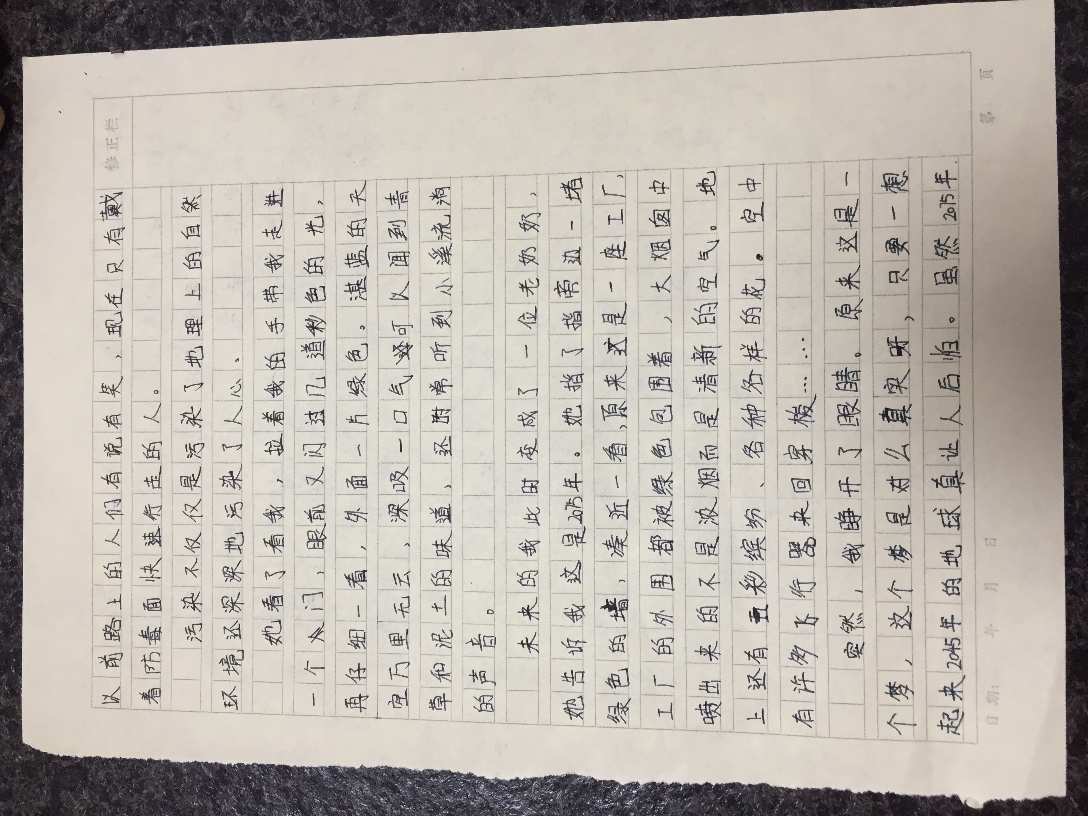 修正栏
以前路上的人们有说有笑，现在只有戴
着防毒面快速行走的人。
污染不仅仅是污染了地理上的自然
环境还深深地污染了人心。
她看了看我，拉着我的手带我走进
一个大门，眼前又闪过几道彩色的光，
再仔细一看，外面一片绿色。湛蓝的天
空万里无云，深吸一口气还可以闻到青
草和泥土的味道，还时常听到小溪流淌
的声音。
未来的我此时变成了一位老奶奶，
她告诉我这是2075年。她指了指旁边一堵
绿色的墙，凑近一看，原来这是一座工厂，
工厂的外围都被绿色包围着，大烟囱中
喷出来的不是浓烟而是清新的空气。地
上还有五彩缤纷、各种各样的花。空中
有许多飞行器来回穿梭……
突然，我睁开了眼睛。原来这是一
个梦，这个梦是对么真实呀，只要一想
起来2045年的地球真让人后怕。虽然2075年
日期： 年 月 日 第 页